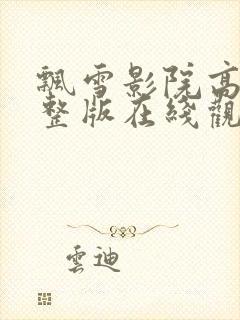 飄雪影院高
整版在綫觀
雲迪